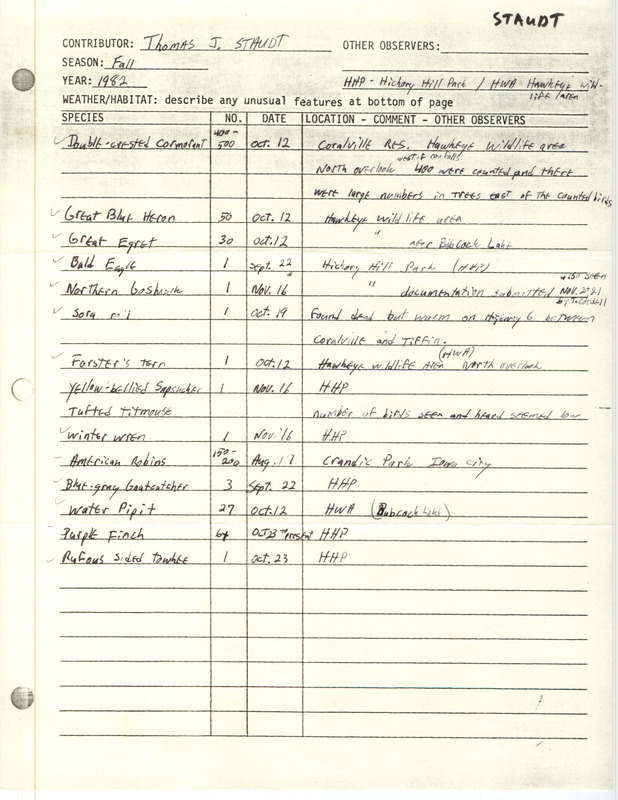 STAUDT
CONTRIBUTOR: Thomas J. STAUDT OTHER OBSERVERS:
SEASON: Fall
YEAR: 1982 HHP - Hickory Hill Park / HWA Hawkeye Wild-
life /area
WEATHER/HABITAT: describe any unusual features at bottom of page
SPECIES NO. DATE LOCATION - COMMENT - OTHER OBSERVERS
Double-crested Cormorant 400-500 Oct. 12 Coralville RES. Hawkeye Wildlife area
North overlook 400 were counted and there
were large numbers in trees east of the counted birds
Great Blue Heron 50 Oct. 12 Hawkeye Wildlife area
Great Egret 30 Oct. 12 " near Babcock Lake
Bald Eagle 1 Sept. 22 Hickory Hill Park (HHP)
also seen
Northern Goshawk 1 Nov. 16 " documentation submitted Nov. 20 21
by T.
Sora rail 1 Oct. 19 Found dead but warm on Highway 6 between
Coralville and Tiffin.
Forster's tern 1 Oct. 12 Hawkeye Wildlife Area (HWA) North overlook
Yellow-bellied Sapsucker 1 Nov. 16 HHP
Tufted Titmouse number of birds seen and heard seemed low
Winter wren 1 Nov. 16 HHP
American Robins 150-200 Aug. 19 Crandic Park Iowa City
Blue-gray Gnatcatcher 3 Sept. 22 HHP
Water Pipit 27 Oct. 12 HWA (Babcock Lake)
Purple Finch 6+ Oct 23 to present HHP
Rufous sided towhee 1 Oct. 23 HHP